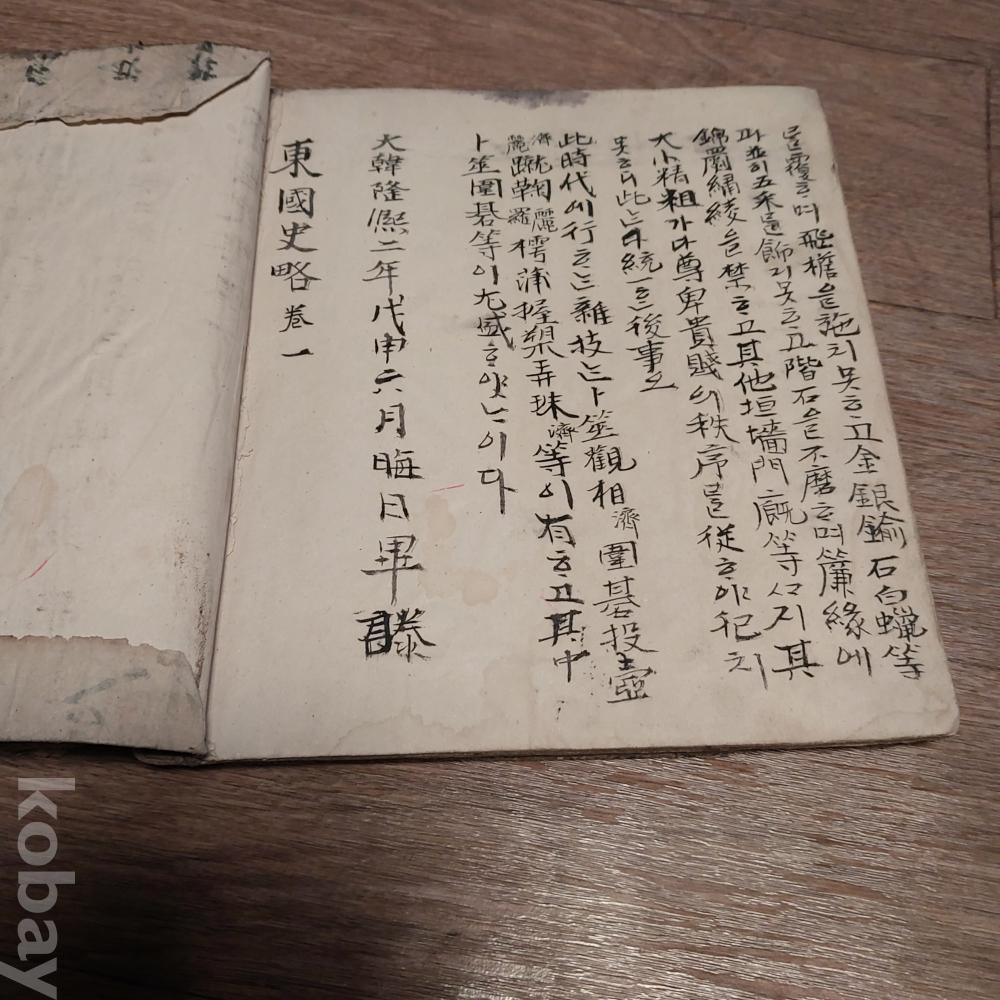 를覆ᄒᆞ며飛檐을施치못ᄒᆞ고金銀鍮石白蠟等
과並히五采를飾지못ᄒᆞ고階石을不磨ᄒᆞ며簾緣에
錦罽繡綾을禁ᄒᆞ고其他垣墻門廐等ᄭᆞ지其
大小精粗가다尊卑貴賤의秩序를從ᄒᆞ야犯치
못ᄒᆞ니此ᄂᆞᆫ다統一ᄒᆞᆫ後事오
此時代에行ᄒᆞᄂᆞᆫ雜技ᄂᆞᆫ卜筮觀相濟圍碁投壺
濟麗蹴鞠麗羅樗蒲握槊弄珠濟等이有ᄒᆞ고其中
卜筮圍碁等이尤盛ᄒᆞ얏ᄂᆞ이다
大韓隆熙二年戊申六月晦日畢謄
東國史略卷一
kobay